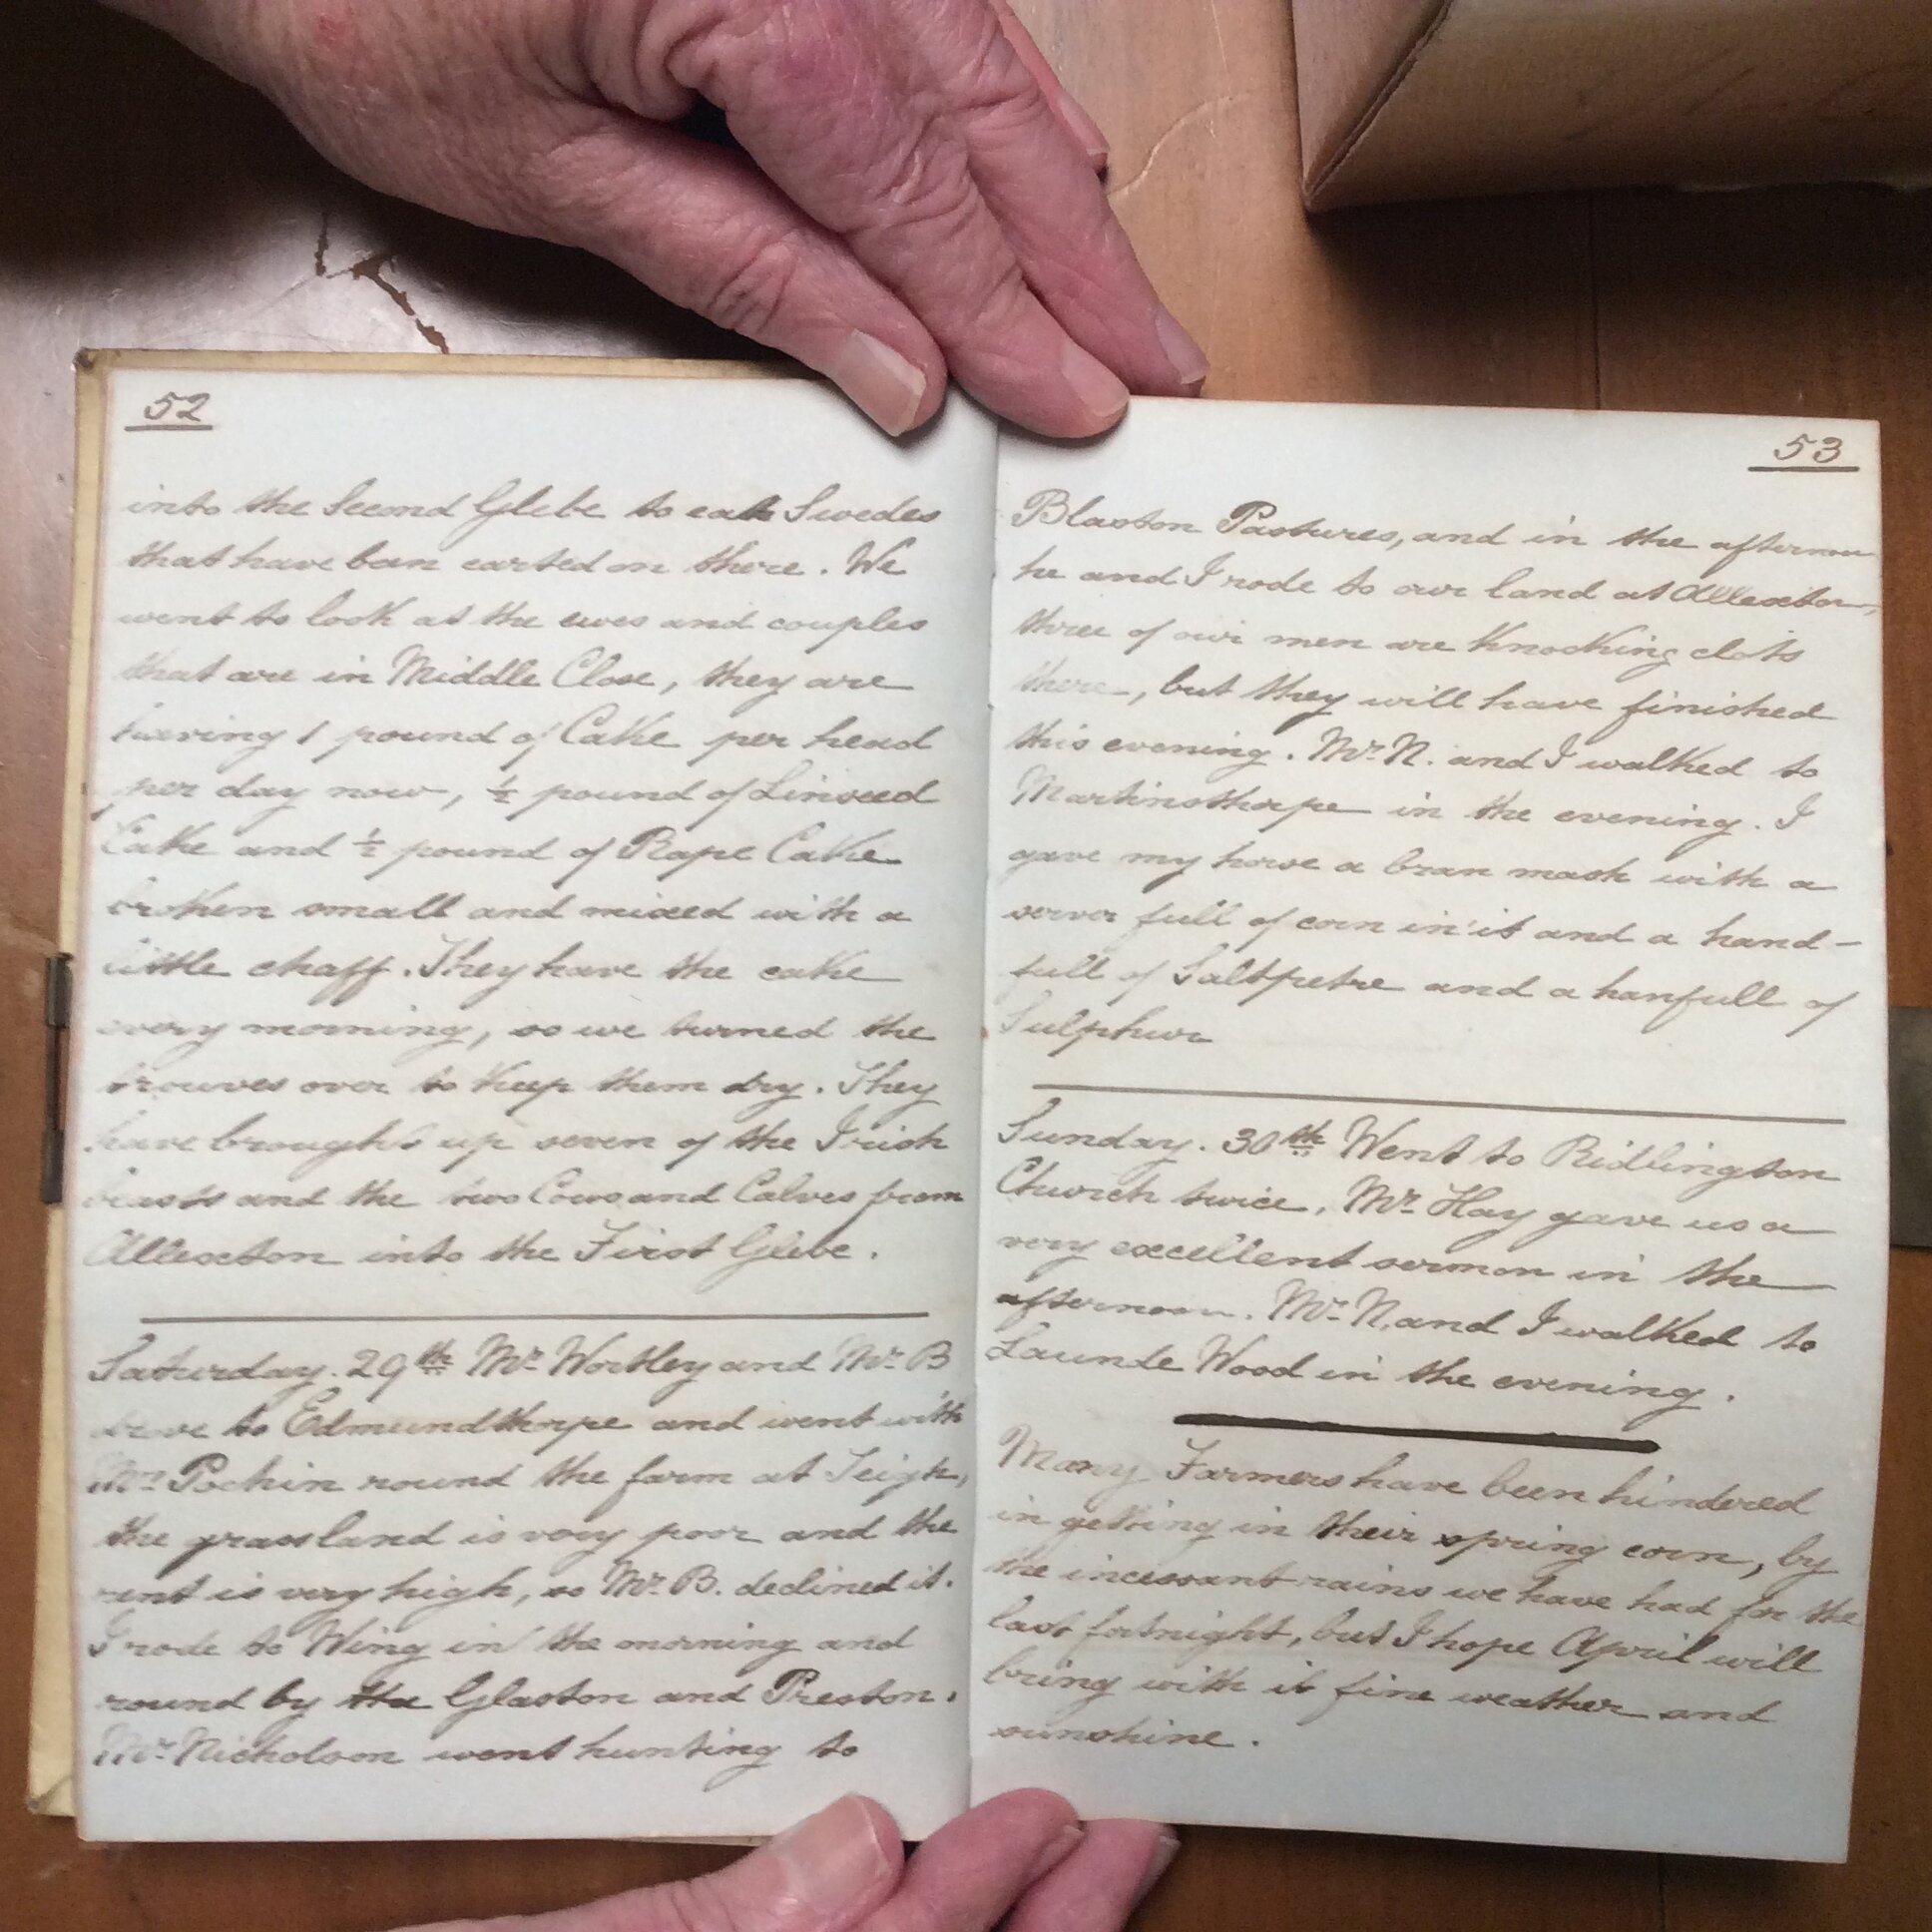 52
into the Second Glebe to eat Swedes
that have been carted on there. We
went to look at the ewes and couples
that are in Middle Close, they are
having 1 pound of Cake per head
per day now, ½ pound of Linseed
Cake and ½ pound of Rape Cake
broken small and mixed with a
little chaff. They have the cake
every morning, so we turned the
trouves over to keep them dry. They
have brought up seven of the Irish
beasts and the two Cows and Calves from
Allexton into the First Glebe.
Saturday. 29th Mr. Wortley and Mr. B
drove to Edmundthorpe and went with
Mr. Pochin round the farm at Teigh,
the grassland is very poor and the
rent is very high, so Mr. B. declined it.
I rode to Wing in the morning and
round by the Glaston and Preston.
Mr. Nicholson went hunting to
53
Blaston Pastures, and in the afternoon
he and I rode to our land at Allexton,
three of our men are knocking clots
there, but they will have finished
this evening. Mr. N. and I walked to
Martinsthorpe in the evening. I
gave my horse a bran mash with a
server full of corn in it and a hand-
full of Saltpetre and a hanfull of
Sulphur
Sunday. 30th Went to Ridlington
Church twice, Mr. Hay gave us a
very excellent sermon in the
afternoon. Mr. N. and I walked to
Launde Wood in the evening.
Many Farmers have been hindered
in getting in their spring corn, by
the incessant rains we have had for the
last fortnight, but I hope April will
bring with it fine weather and
sunshine.